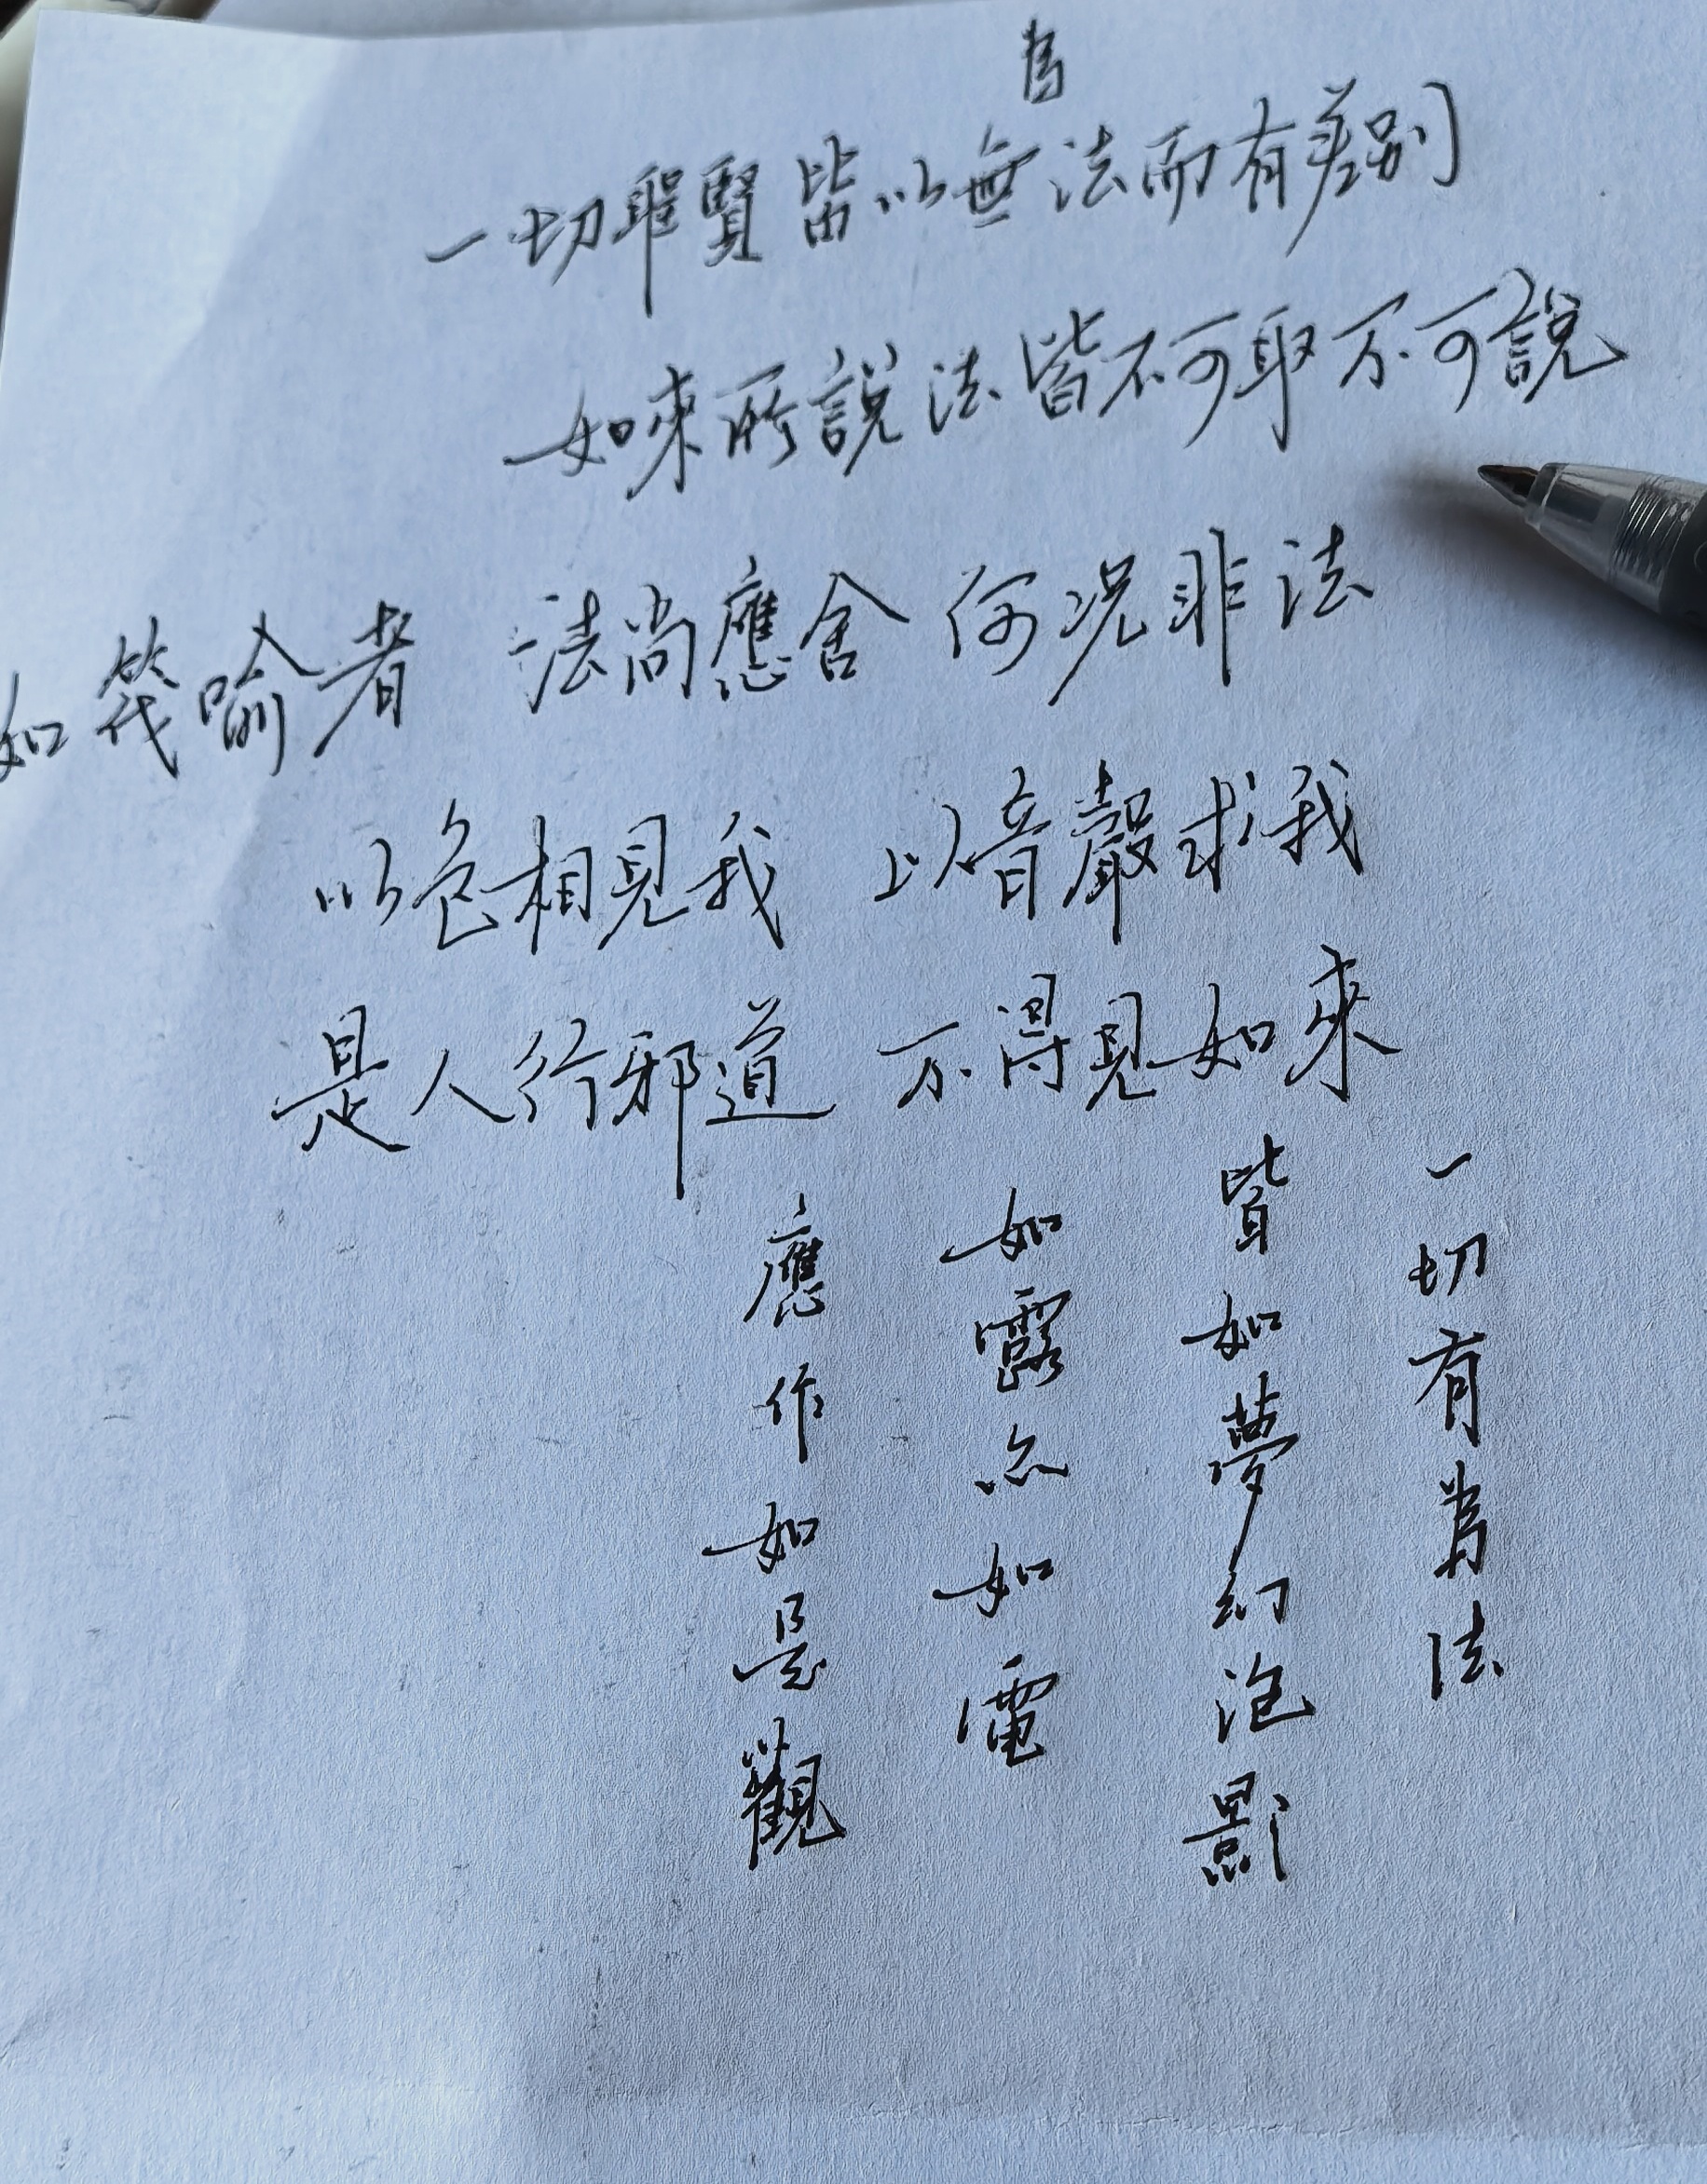 為
一切聖賢皆以無法而有差别
如來所說法皆不可取不可說
如筏喻者 法尚應舍 何况非法
以色相見我 以音聲求我
是人行邪道 不得見如來
一切有為法
皆如夢幻泡影
如露亦如電
應作如是觀